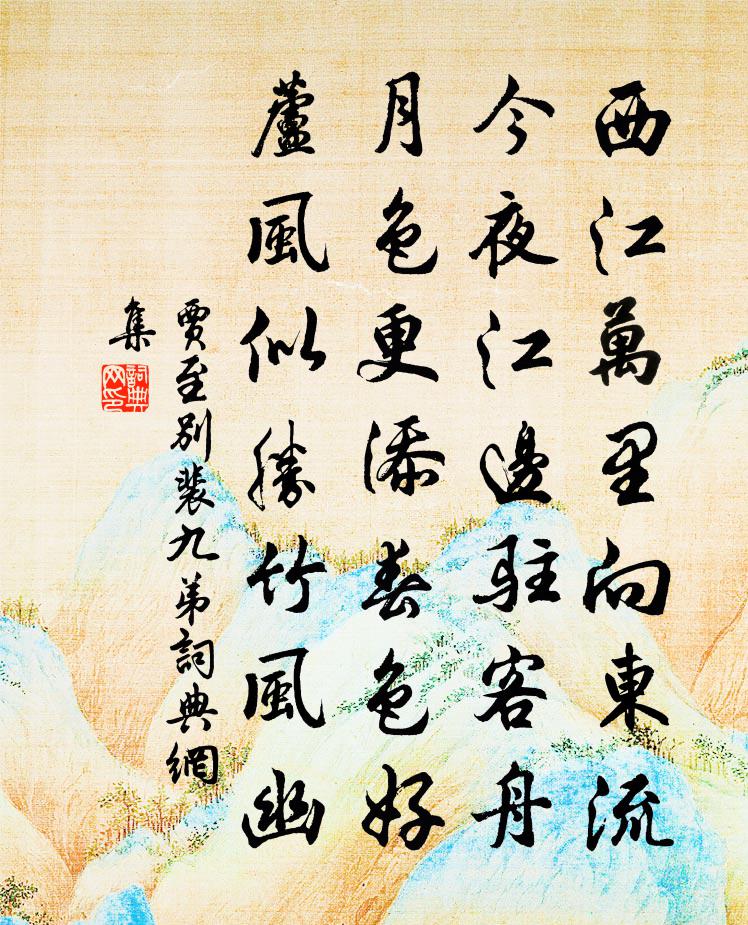 西江萬里向東流
今夜江邊駐客舟
月色更添春色好
蘆風似勝竹風幽
賈至別裴九弟詞典網
集
詞典網印